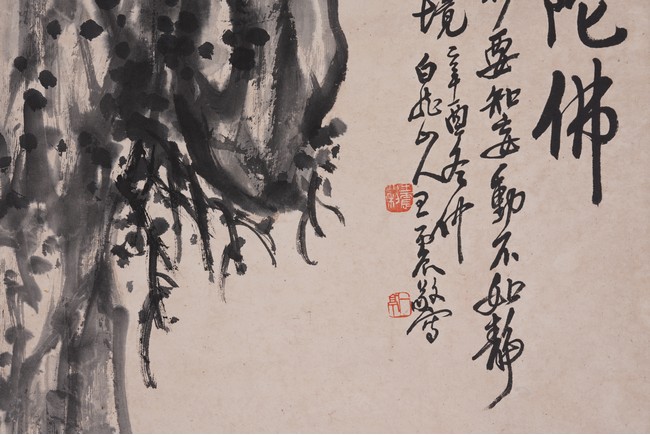 陀佛
要知妄動不如靜
境辛酉冬仲
白龍山人王震敬寫